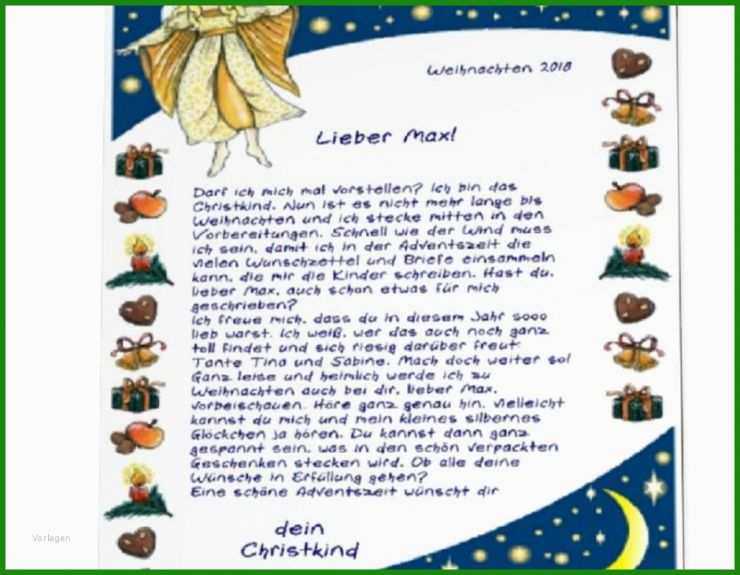 Weihnachten 2018
Lieber Max!
Darf ich mich mal vorstellen? Ich bin das
Christkind. Nun ist es nicht mehr lange bis
Weihnachten und ich stecke mitten in den
Vorbereitungen. Schnell wie der Wind muss
ich sein, damit ich in der Adventszeit die
vielen Wunschzettel und Briefe einsammeln
kann, die mir die Kinder schreiben. Hast du,
lieber Max, auch schon etwas für mich
geschrieben?
Ich freue mich, dass du in diesem Jahr sooo
lieb warst. Ich weiß, wer das auch noch ganz
toll findet und sich riesig darüber freut:
Tante Tina und Sabine. Mach doch weiter so!
Ganz leise und heimlich werde ich zu
Weihnachten auch bei dir, lieber Max,
vorbeischauen. Höre ganz genau hin, vielleicht
kannst du mich und mein kleines silbernes
Glöckchen ja hören. Du kannst dann ganz
gespannt sein, was in den schön verpackten
Geschenken stecken wird. Ob alle deine
Wünsche in Erfüllung gehen?
Eine schöne Adventszeit wünscht dir
dein
Christkind
Vorlagen